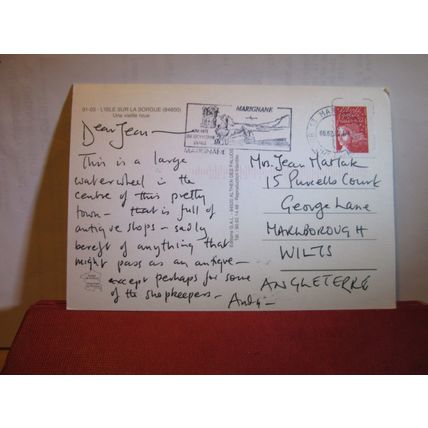 01-03 - L'ISLE SUR LA SORGUE (84800)
Une vieille roue
MARIGNANE
MARIGNANE
Dear Jean -
This is a large
waterwheel in the
centre of this pretty
town - that is full of
antique shops - sadly
bereft of anything that
might pass as an antique -
except perhaps for some
of the shopkeepers -
Andy -
Mrs. Jean Matlak
15 Purcells Court
George Lane
MARLBOROUGH
WILTS
ANGLETERRE